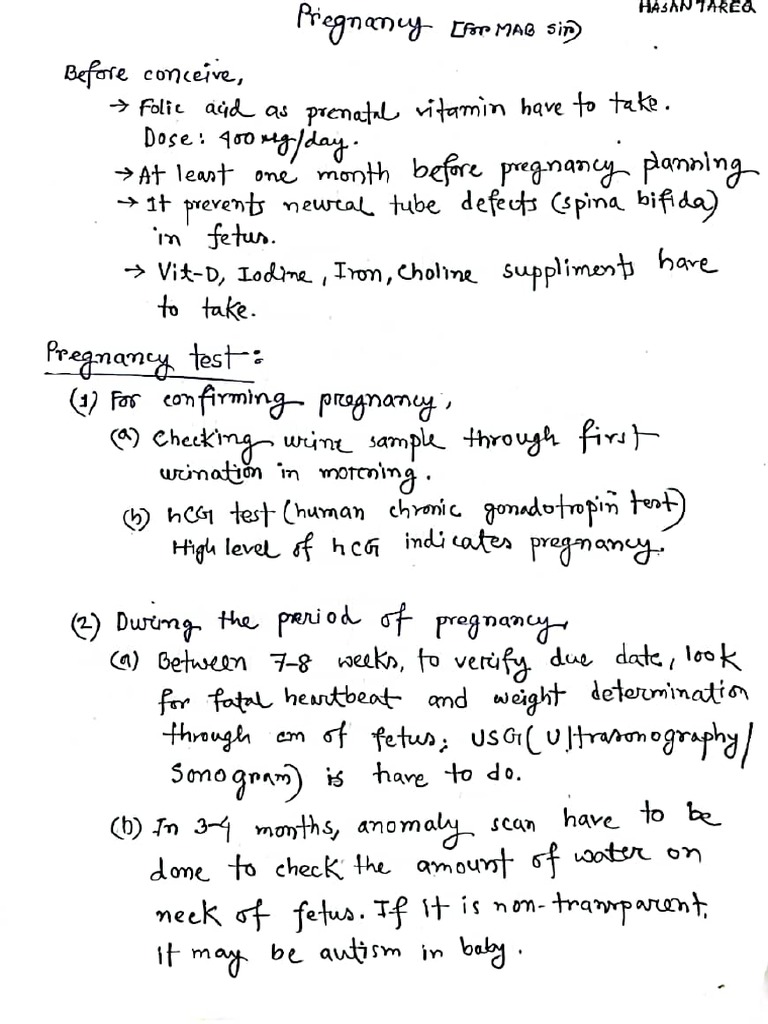 HASAN TAREQ
Pregnancy [For MAB sir)
Before conceive,
→ Folic acid as prenatal vitamin have to take.
Dose: 400 µg/day.
→ At least one month before pregnancy planning
→ It prevents neural tube defects (spina bifida)
in fetus.
→ Vit-D, Iodine, Iron, Choline suppliments have
to take.
Pregnancy test:
(1) For confirming pregnancy,
(a) Checking urine sample through first
urination in morning.
(b) hCG test (human chronic gonadotropin test)
High level of hCG indicates pregnancy.
(2) During the period of pregnancy,
(a) Between 7-8 weeks, to verify due date, look
for fatal heartbeat and weight determination
through cm of fetus; USG (Ultrasonography/
Sonogram) is have to do.
(b) In 3-4 months, anomaly scan have to be
done to check the amount of water on
neck of fetus. If it is non-transparent,
it may be autism in baby.